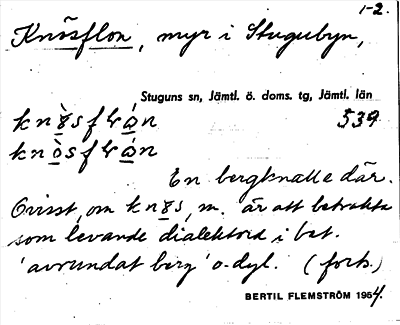 1-2.
Knösflon, myr i Stugubyn,
Stuguns sn, Jämtl. ö. doms. tg, Jämtl. län
539
En bergknalle där.
Ovisst, om knøs, m. är att betrakta
som levande dialektord i bet.
'avrundat berg' o.dyl. (forts.)
BERTIL FLEMSTRÖM 1964.